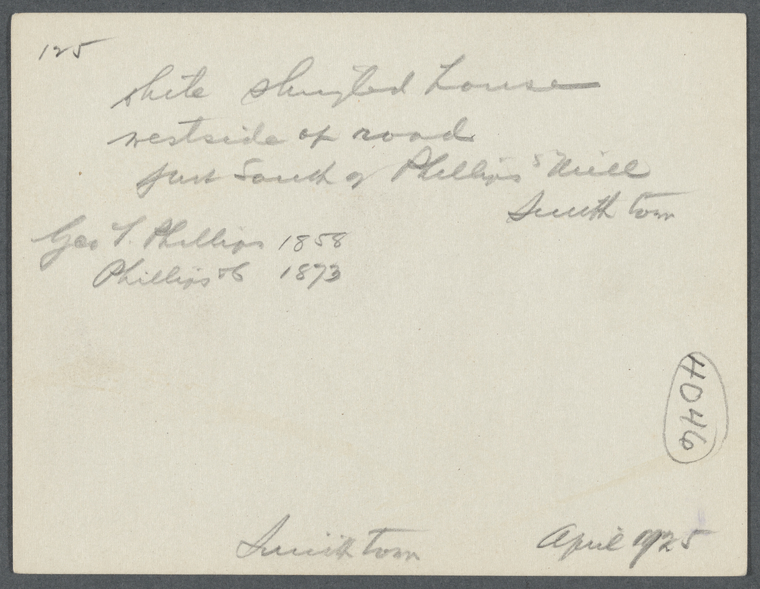 125
white shingled house
westside of road
just South of Phillips' Mill
Smithtown
Geo S. Phillips 1858
Phillips 1873
4046
Smithtown April 1925